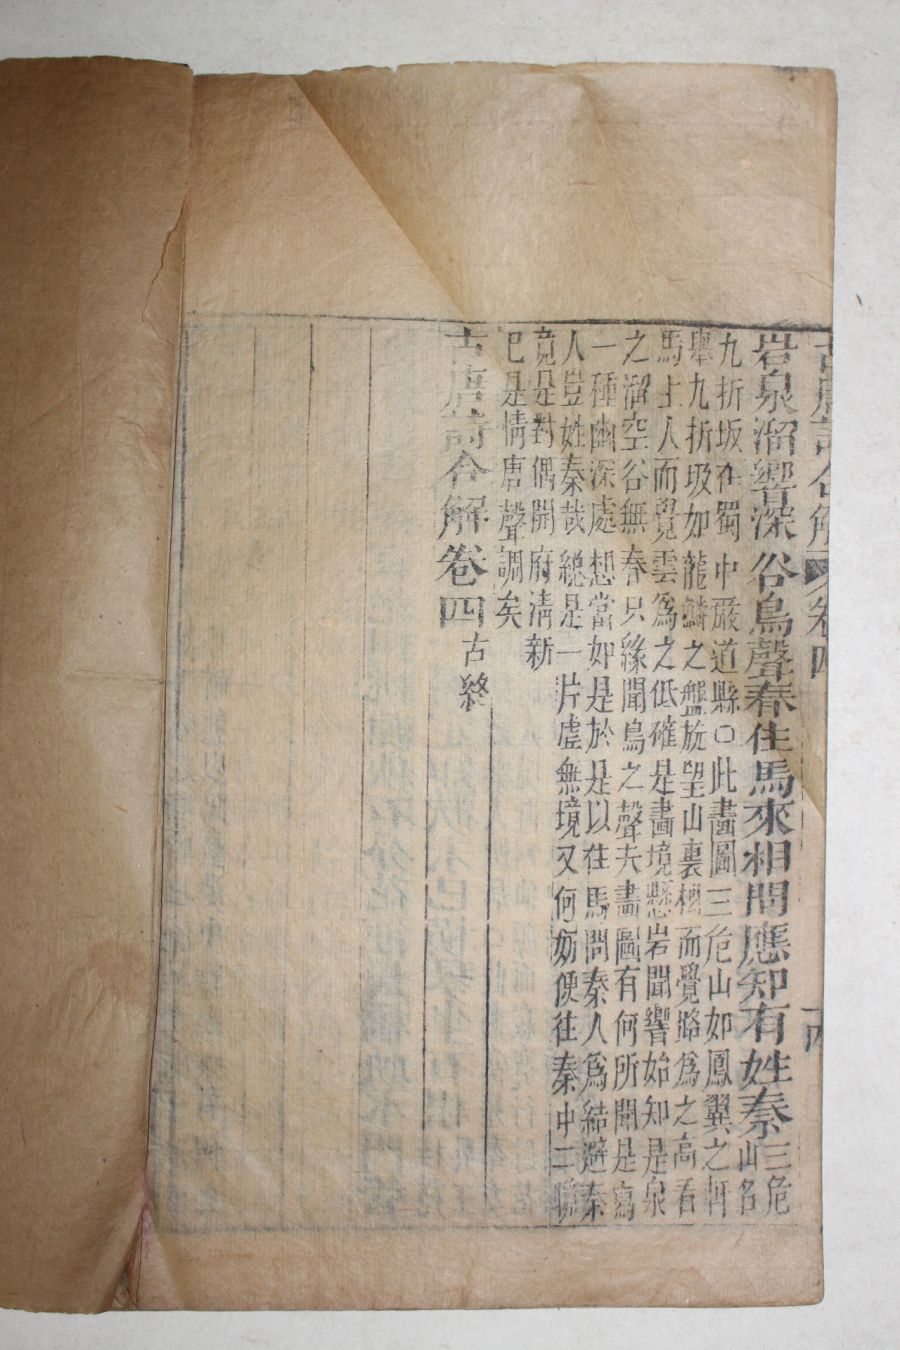 古唐詩合解 卷四 十四
岩泉溜響深谷鳥聲春住馬來相問應知有姓秦三危
山名
九折坂在蜀中嚴道縣○此畵圖三危山如鳳翼之軒
舉九折坂如龍鱗之盤旋望山裏樓而覺路爲之高看
馬上人而覺雲爲之低確是畵境懸岩聞響始知是泉
之溜空谷無春只緣聞鳥之聲夫畵圖有何所聞是寫
一種幽深處想當如是於是以住馬問秦人爲結避秦
人豈姓秦哉總是一片虛無境又何妨便往秦中二聯
竟是對偶開府淸新
已是情唐聲調矣
古唐詩合解卷四古終